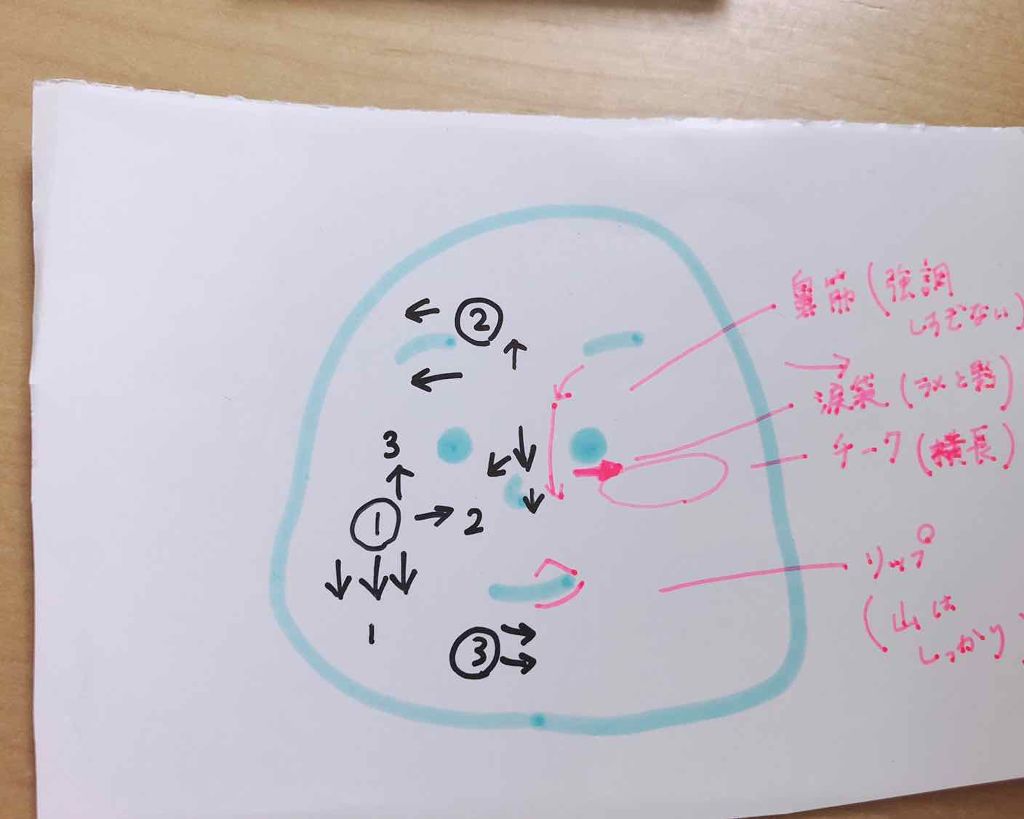 ②
3
①
2
1
③
鼻筋(強調
しすぎない)
涙袋(ラメと影)
チーク(横長)
リップ
(山は
しっかり)